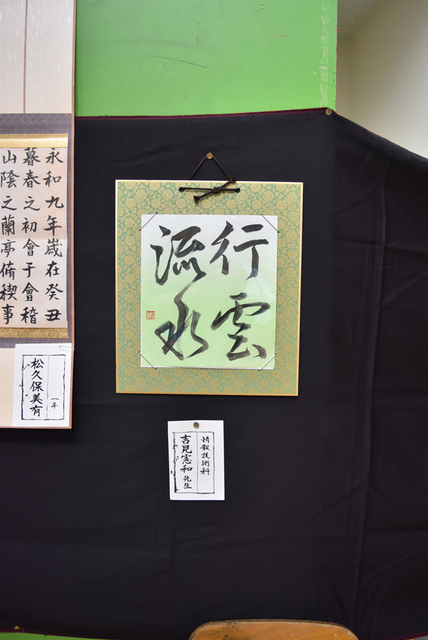 行雲
流水
情報技術科
吉見憲和 先生
永和九年歳在癸丑
暮春之初會于會稽
山陰之蘭亭脩禊事
一年
松久保美有